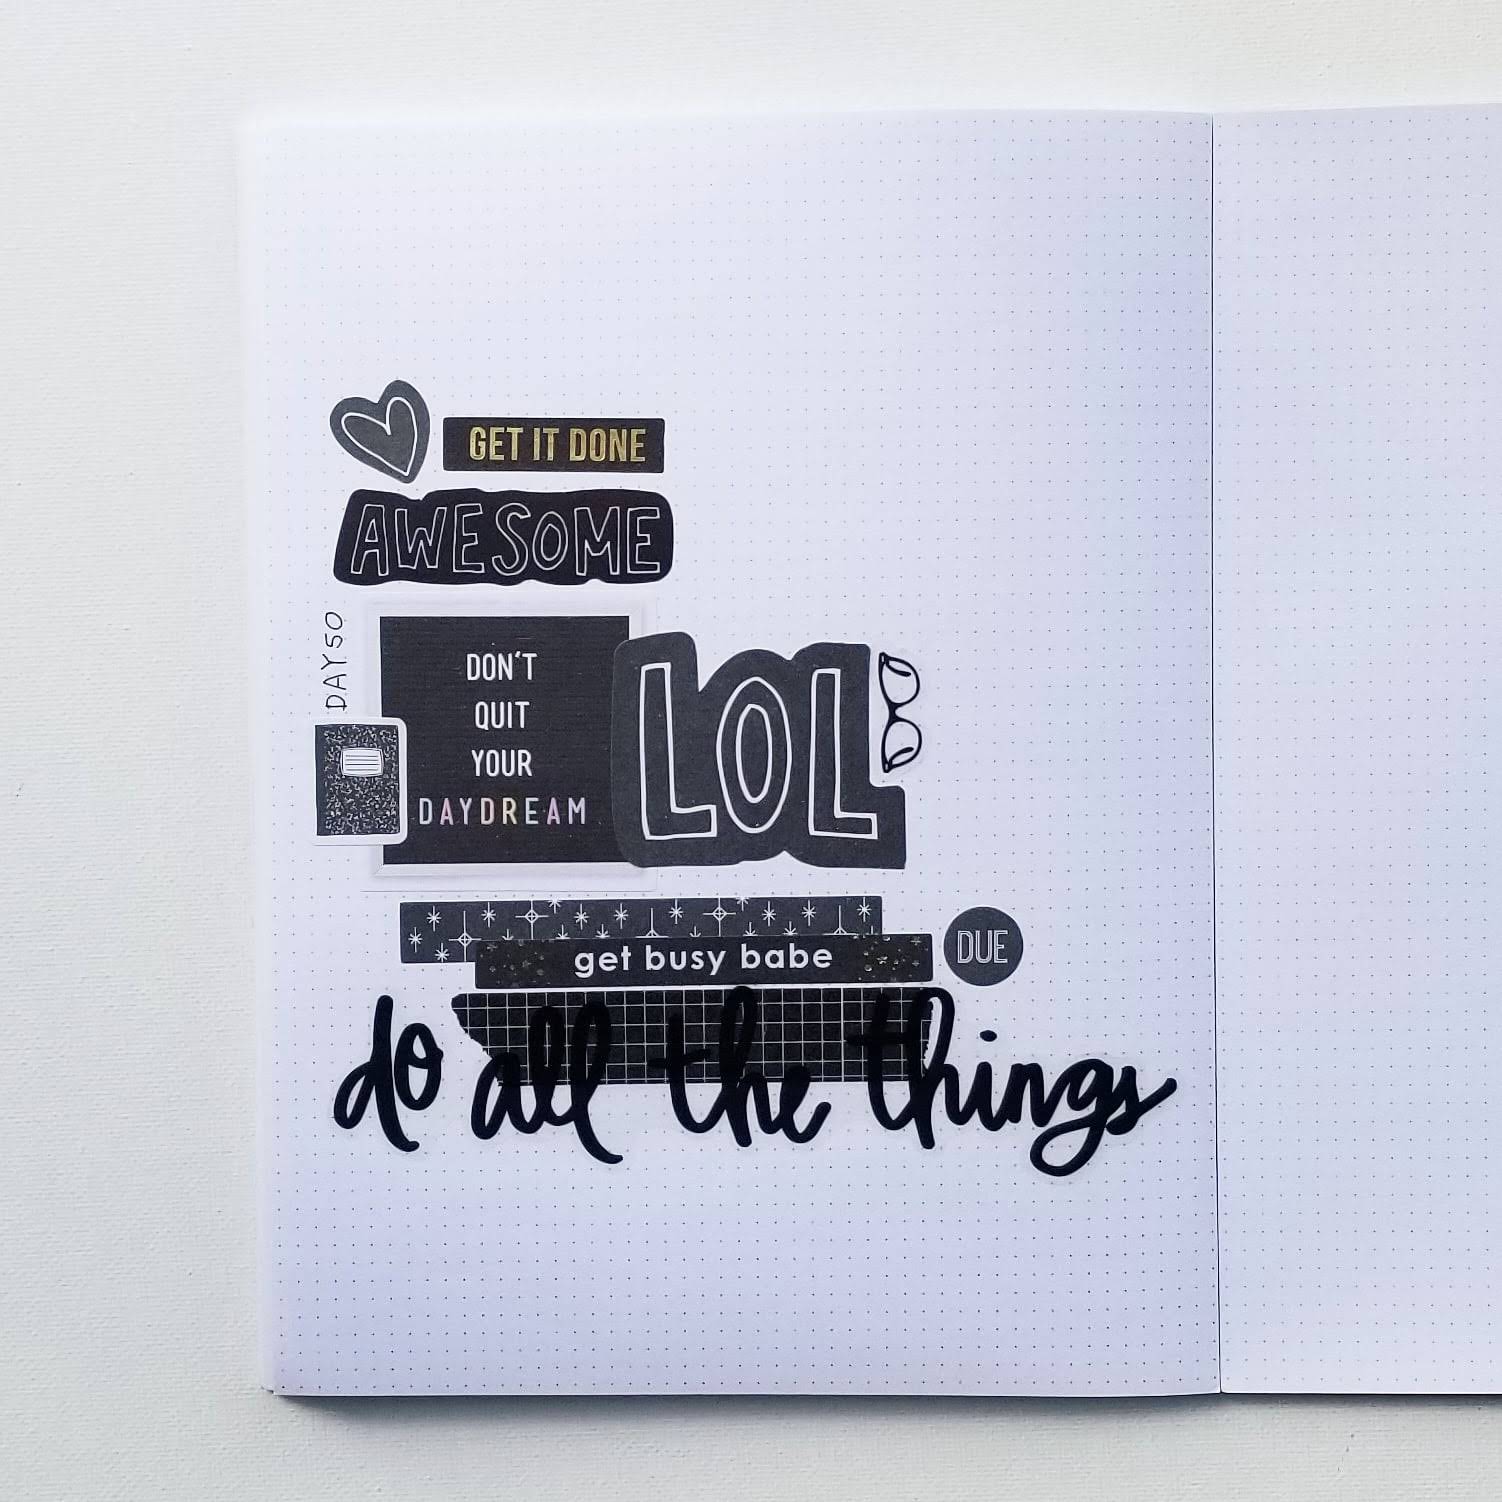 GET IT DONE
AWESOME
DAY 50
DON'T
QUIT
YOUR
DAYDREAM
LOL
get busy babe
DUE
do all the things